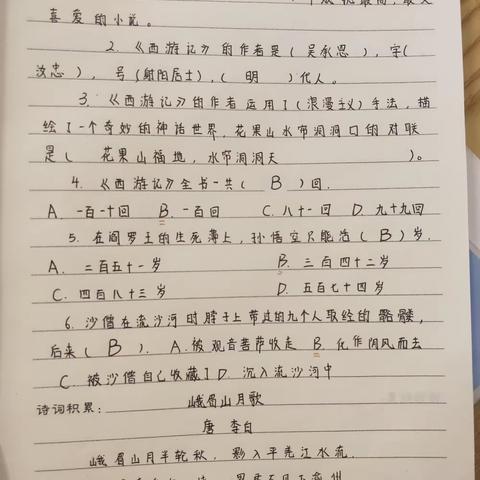 喜爱的小说。
2.《西游记》的作者是(吴承恩),字(
汝忠),号(射阳居士),(明)代人。
3.《西游记》的作者运用了(浪漫主义)手法,描
绘了一个奇妙的神话世界,花果山水帘洞洞口的对联
是(花果山福地,水帘洞洞天)。
4.《西游记》全书一共(B)回.
A.一百一十回 B.一百回 C.八十一回 D.九十九回
5.在阎罗王的生死薄上,孙悟空只能活(B)岁.
A.二百五十一岁 B.三百四十二岁
C.四百八十三岁 D.五百七十四岁
6.沙僧在流沙河时脖子上带过的九个人取经的骷髅,
后来(B). A.被观音菩萨收走 B.化作阴风而去
C.被沙僧自己收藏了 D.沉入流沙河中
诗词积累: 峨眉山月歌
唐 李白
峨眉山月半轮秋,影入平羌江水流.